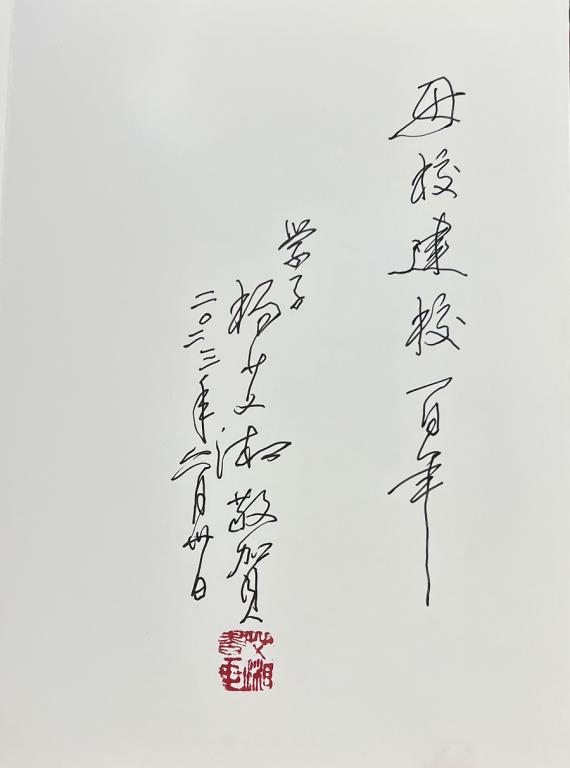 母校建校百年
学子
杨艾湘敬贺
二〇二三年六月卅日
艾湘書画